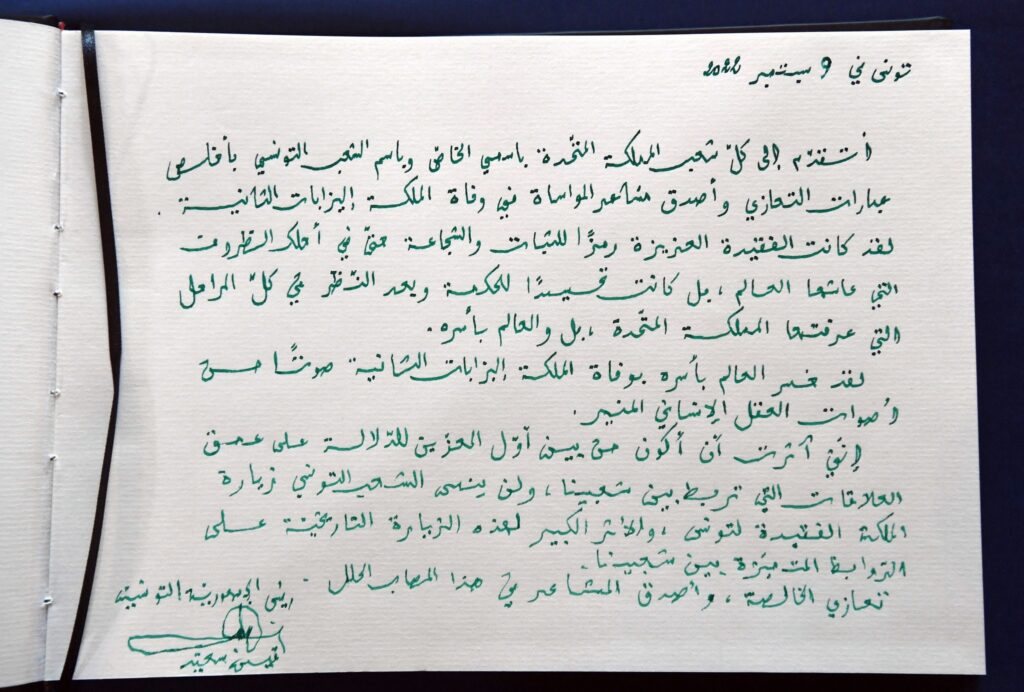 تونس في 9 سبتمبر 2022
أتقدّم إلى كلّ شعب المملكة المتّحدة باسمي الخاصّ وباسم الشعب التونسي بأخلص
عبارات التعازي وأصدق مشاعر المواساة في وفاة الملكة إليزابات الثانية .
لقد كانت الفقيدة العزيزة رمزًا للثبات والشجاعة حتّى في أحلك الظروف
التي عاشها العالم ، بل كانت تجسيدًا للحكمة وبعد النّظر في كلّ المراحل
التي عرفتها المملكة المتّحدة ، بل والعالم بأسره .
لقد خسر العالم بأسره بوفاة الملكة إليزابات الثانية صوتًا من
أصوات العقل الإنساني المنير .
إنّي آثرت أن أكون من بين أوّل المعزّين للدّلالة على عمق
العلاقات التي تربط بين شعبينا ، ولن ينسى الشعب التونسي زيارة
الملكة الفقيدة لتونس ، والأثر الكبير لهذه الزيارة التاريخيّة على
الروابط المتميّزة بين شعبينا .
تعازيّ الخالصة ، وأصدق المشاعر في هذا المصاب الجلل .
رئيس الجمهوريّة التونسيّة
قيس سعيّد